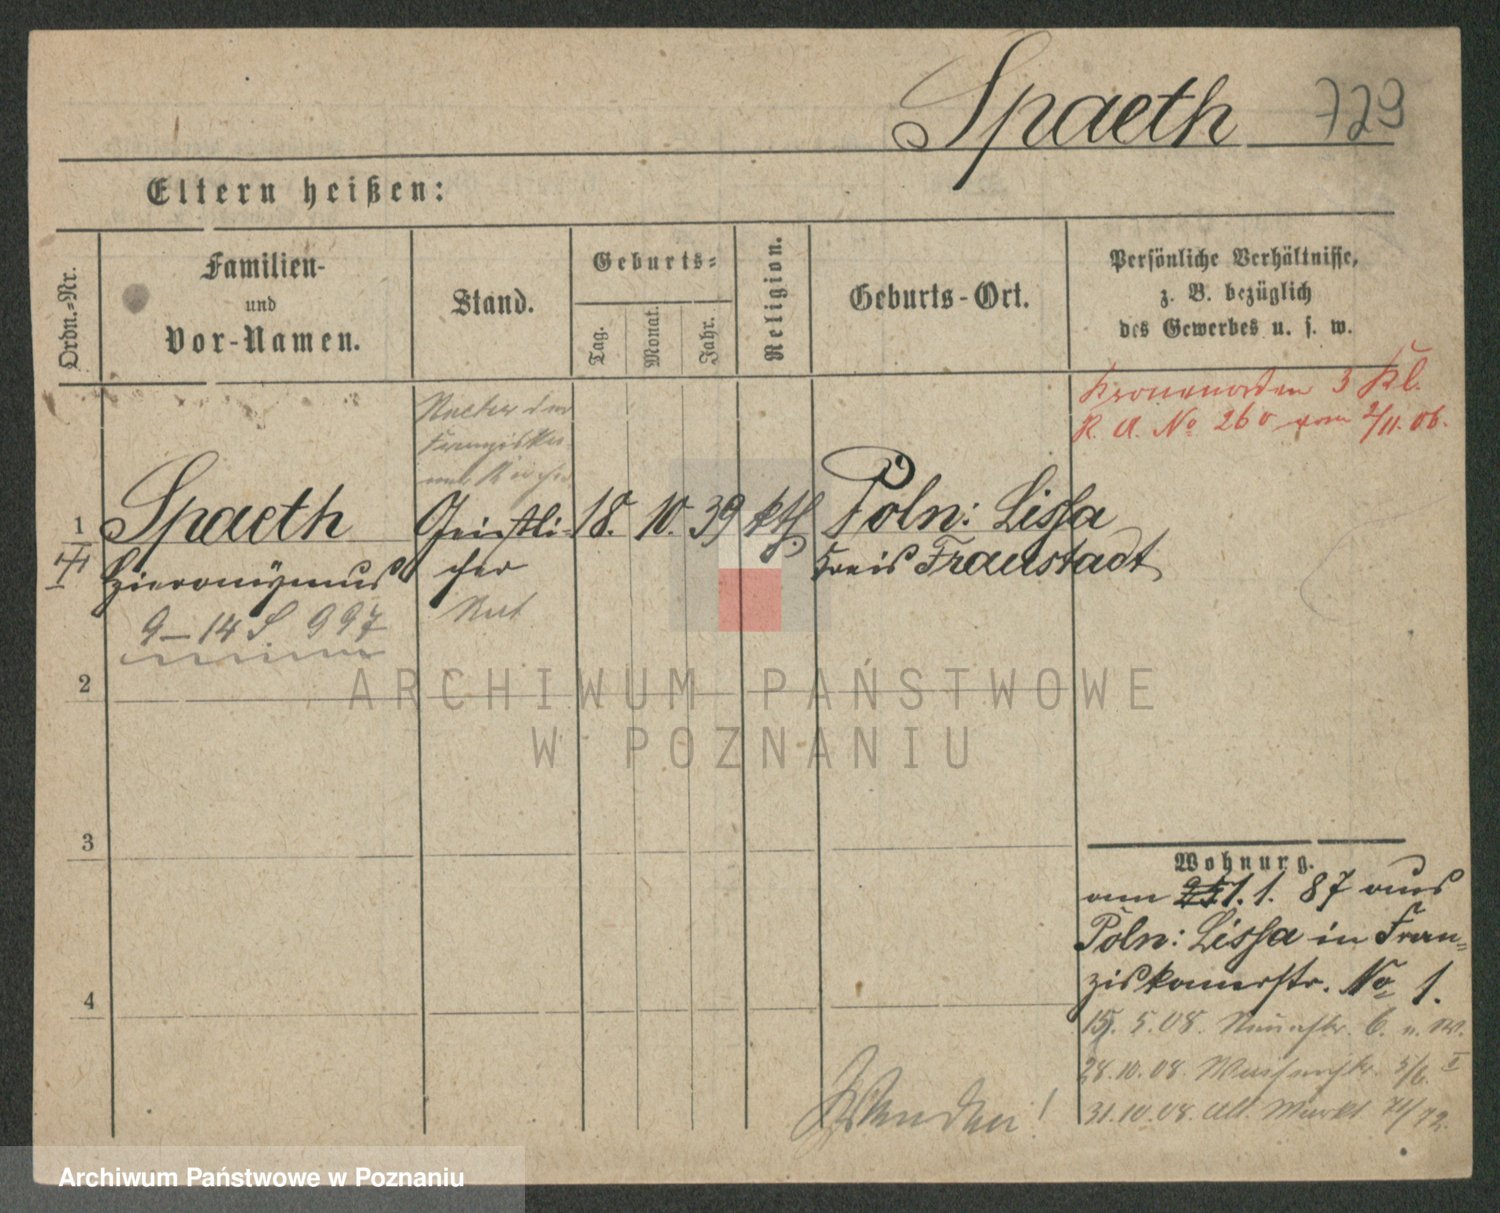 Spaeth 729
Eltern heißen:
Ordn.-Nr.
Familien-
und
Vor-Namen.
Stand.
Geburts-
Tag.
Monat.
Jahr.
Religion.
Geburts-Ort.
Persönliche Verhältnisse,
z. B. bezüglich
des Gewerbes u. s. w.
Kronenorden 3 Kl.
R. A. No 260 vom 2/11. 06.
Rector der
Franziska
1 Spaeth Geistli- 18. 10. 39 kth. Poln: Lissa
Hieronÿmus cher Kreis Fraustadt
9-14 S. 997
2
ARCHIWUM PAŃSTWOWE
W POZNANIU
3
Wohnung.
am 1. 1. 87 aus
Poln: Lissa in Fran-
ziskanerstr. No 1.
4
15. 5. 08. 6.
28. 10. 08. Waisenstr. 5/6. II
31. 10. 08. Alt. Markt 71/72.
Wenden!
Archiwum Państwowe w Poznaniu